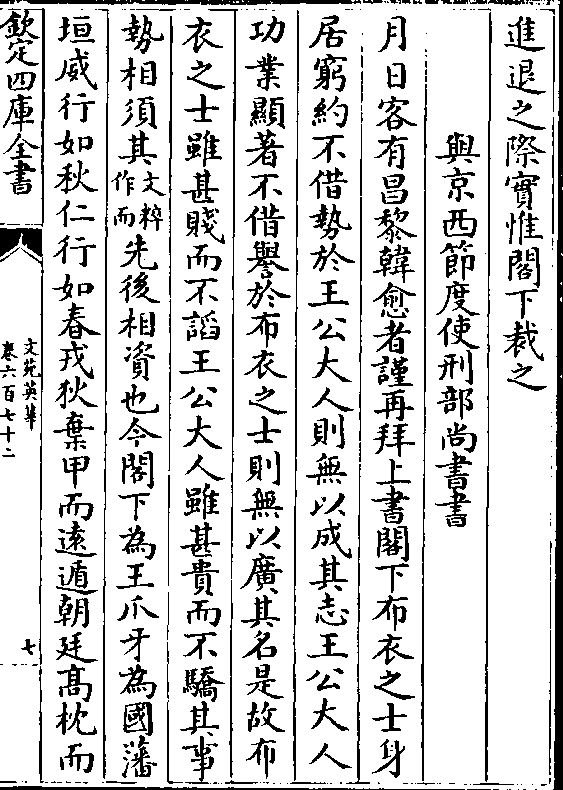 進退之際實惟閣下裁之
與京西節度使刑部尚書書
月日客有昌黎韓愈者謹再拜上書閣下布衣之士身
居窮約不借勢於王公大人則無以成其志王公大人
功業顯著不借譽於布衣之士則無以廣其名是故布
衣之士雖甚賤而不謟王公大人雖甚貴而不驕其事
勢相須其文粹作而先後相資也今閣下為王爪牙為國藩
垣威行如秋仁行如春戎狄棄甲而遠遁朝廷髙枕而
欽定四庫全書
文苑英華
卷六百七十二
七